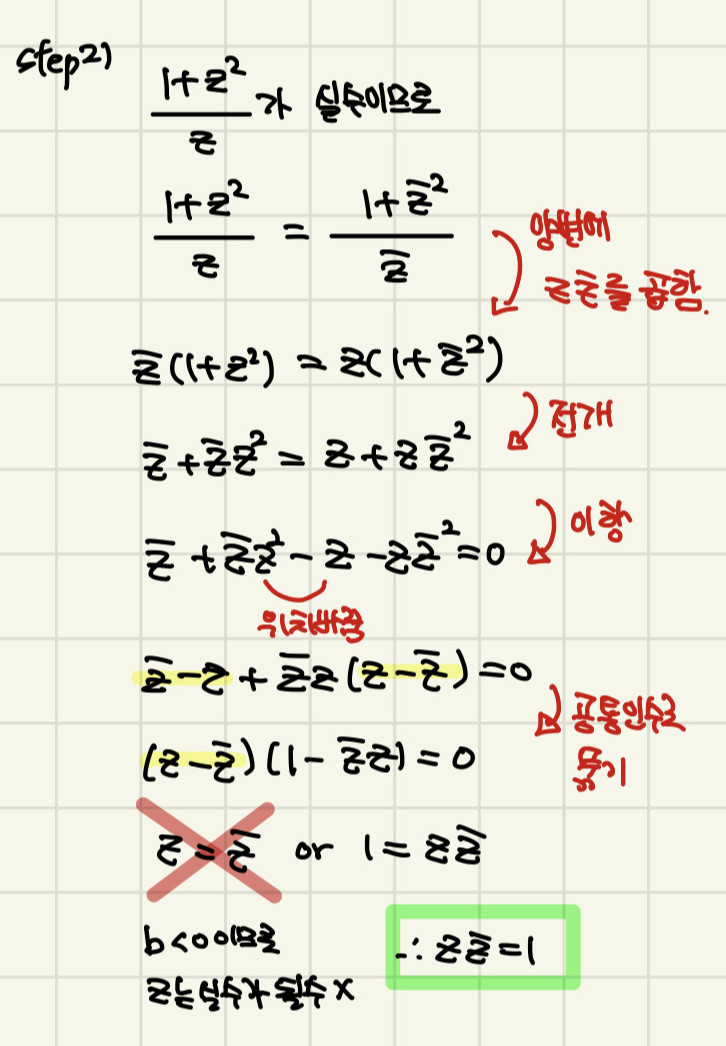 step2)
\frac{1+z^2}{z}가 실수이므로
\frac{1+z^2}{z} = \frac{1+\bar{z}^2}{\bar{z}}
양변에
z\bar{z}를 곱함.
\bar{z}(1+z^2) = z(1+\bar{z}^2)
전개
\bar{z}+\bar{z}z^2 = z+z\bar{z}^2
이항
\bar{z}+\bar{z}z^2-z-z\bar{z}^2=0
위치바꿈
\bar{z}-z+\bar{z}z(z-\bar{z})=0
공통인수로
묶기
(z-\bar{z})(1-\bar{z}z)=0
z=\bar{z} or 1=z\bar{z}
b<0이므로
z는 실수가 될수 x
∴ z\bar{z}=1